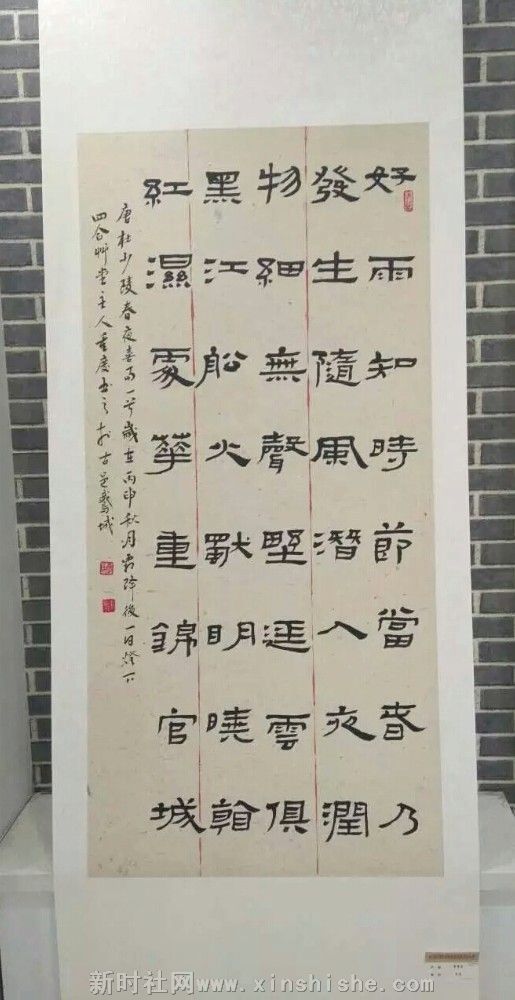 好雨知時節當春乃
發生隨風潛入夜潤
物細無聲墅逕雲俱
黑江舩火獨明曉看
紅濕處華重錦官城
唐杜少陵春夜喜雨一首歲在丙申秋月霜降後一日燈下
四合艸堂主人重慶書之於古邑城
新时社网www.xinshishe.com